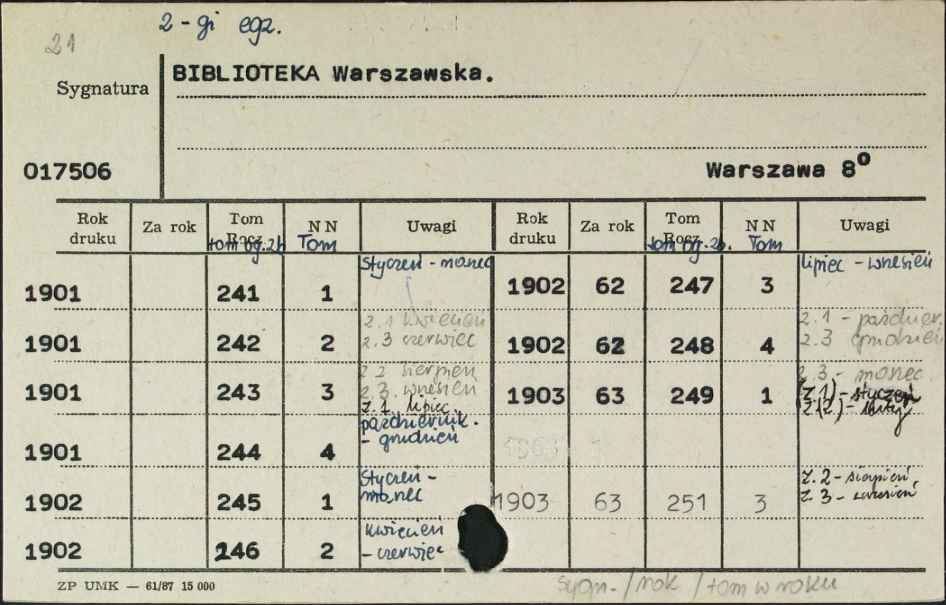 21
2-gi egz.
Sygnatura
BIBLIOTEKA Warszawska.
017506
Warszawa 8º
Rok druku Za rok Tom Rocz. NN Uwagi Rok druku Za rok Tom Rocz. NN Uwagi
tom og. zb. Tom tom og. zb. Tom
1901 241 1 Styczeń - marzec 1902 62 247 3 lipiec - wrzesień
1901 242 2 z.1 kwiecień 1902 62 248 4 z.1 - paździer.
z.3 czerwiec z.3 grudzień
1901 243 3 z.2 sierpień 1903 63 249 1 z.3 - marzec
z.3. wrzesień (z.1) - styczeń
z.1. lipiec z.(2) - luty
1901 244 4 październik. - grudzień
1902 245 1 Styczeń - marzec 1903 63 251 3 z.2 - sierpień
z.3 - wrzesień
1902 246 2 kwiecień - czerwiec
ZP UMK — 61/87 15 000
sygn. / rok / tom w roku